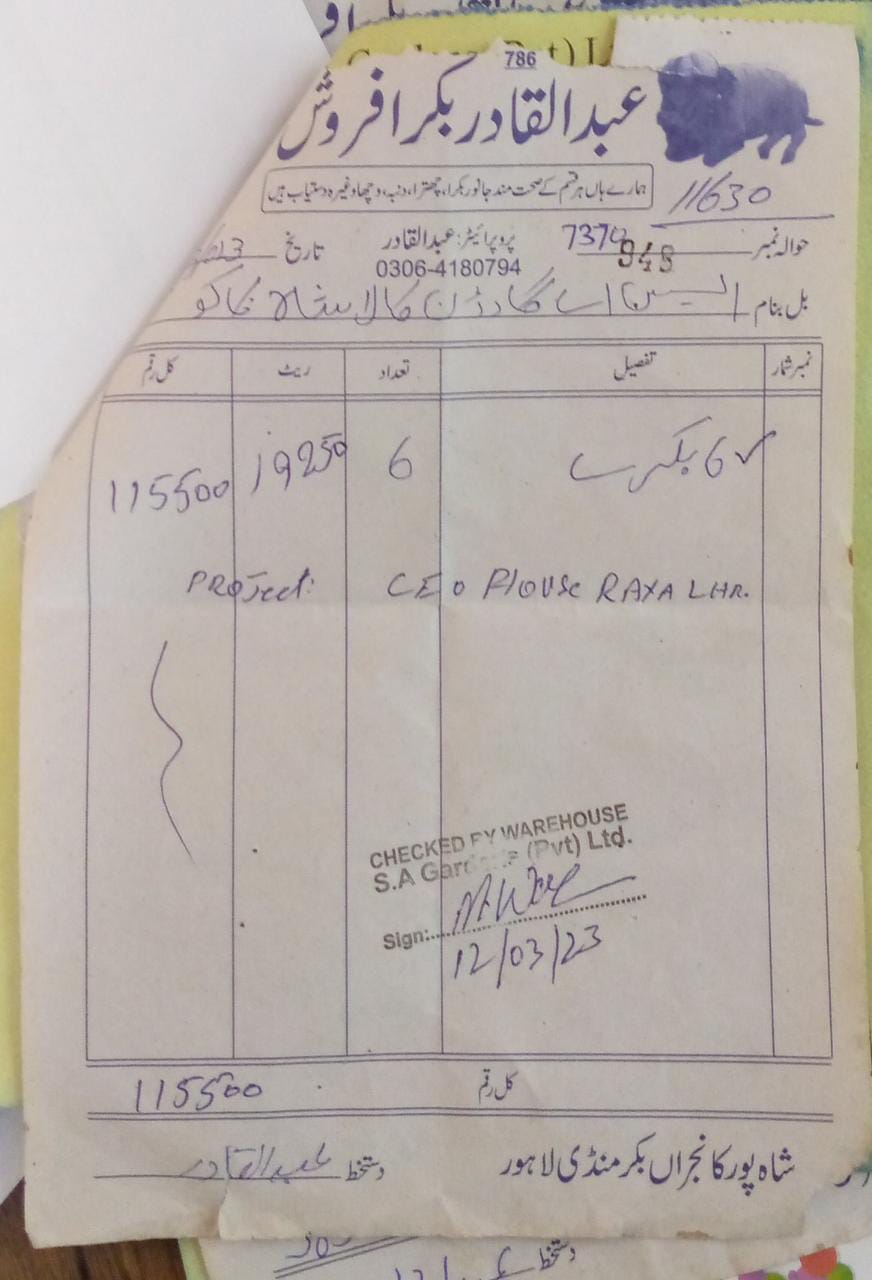 786
عبدالقادر بکرا فروش
ہمارے ہاں ہر قسم کے صحت مند جانور بکرا، چھترا، دنبہ، وچھا وغیرہ دستیاب ہیں
11630
حوالہ نمبر 7374 948
پروپرائیٹر: عبدالقادر
0306-4180794
تاریخ
بل بنام ایس اے گارڈن کالا شاہ کاکو
نمبر شمار تفصیل تعداد ریٹ کل رقم
6 بکرے 6 19250 115500
PROJect: CEO HOUSE RAYA LHR.
CHECKED BY WAREHOUSE
S.A Gardens (Pvt) Ltd.
Sign:
12/03/23
کل رقم 115500
شاہ پور کانجراں بکر منڈی لاہور
دستخط عبدالقادر
دستخط